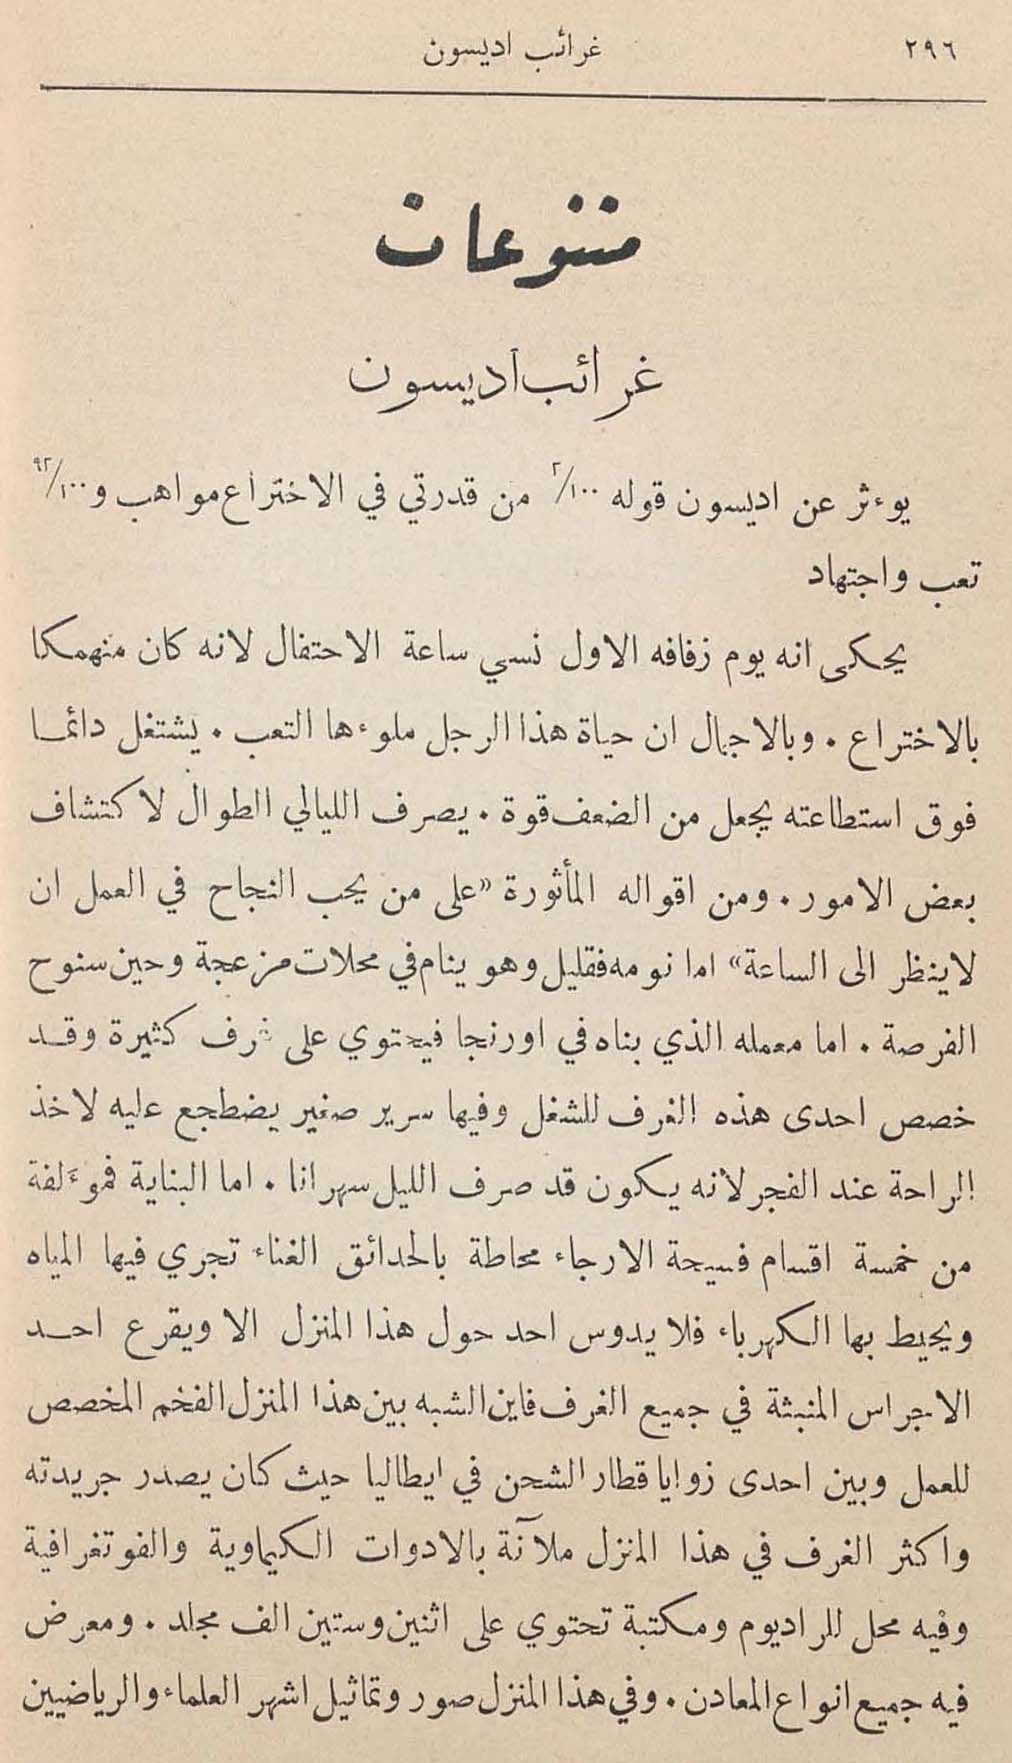 ٢٩٦
غرائب اديسون
متنوعات
غرائب اديسون
يوءثر عن اديسون قوله ٢/١٠٠ من قدرتي في الاختراع مواهب و ٩٢/١٠٠
تعب واجتهاد
يحكى انه يوم زفافه الاول نسي ساعة الاحتفال لانه كان منهمكا
بالاختراع . وبالاجمال ان حياة هذا الرجل ملوءها التعب . يشتغل دائما
فوق استطاعته يجعل من الضعف قوة . يصرف الليالي الطوال لاكتشاف
بعض الامور . ومن اقواله المأثورة «على من يحب النجاح في العمل ان
لاينظر الى الساعة» اما نومه فقليل وهو ينام في محلات مزعجة وحين سنوح
الفرصة . اما معمله الذي بناه في اورنجا فيحتوي على غرف كثيرة وقد
خصص احدى هذه الغرف للشغل وفيها سرير صغير يضطجع عليه لاخذ
الراحة عند الفجر لانه يكون قد صرف الليل سهرانا . اما البناية فموءلفة
من خمسة اقسام فسيحة الارجاء محاطة بالحدائق الغناء تجري فيها المياه
ويحيط بها الكهرباء فلا يدوس احد حول هذا المنزل الا ويقرع احد
الاجراس المنبثة في جميع الغرف فاين الشبه بين هذا المنزل الفخم المخصص
للعمل وبين احدى زوايا قطار الشحن في ايطاليا حيث كان يصدر جريدته
واكثر الغرف في هذا المنزل ملآنة بالادوات الكيماوية والفوتغرافية
وفيه محل للراديوم ومكتبة تحتوي على اثنين وستين الف مجلد . ومعرض
فيه جميع انواع المعادن . وفي هذا المنزل صور وتماثيل اشهر العلماء والرياضيين